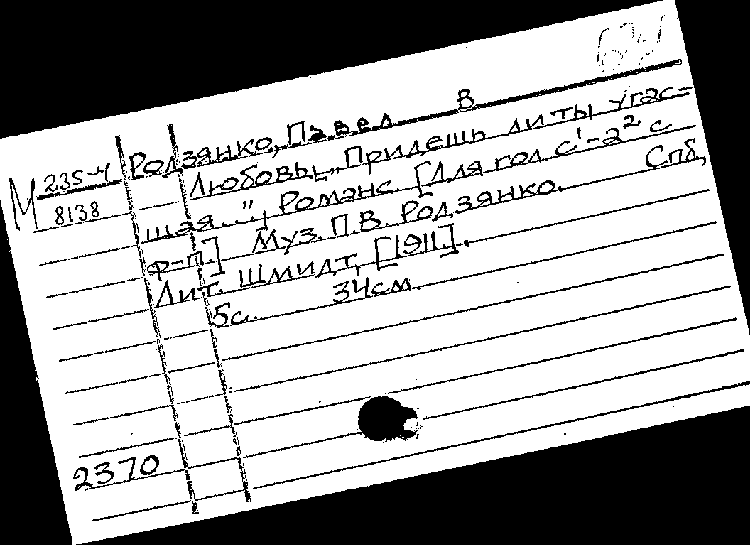 Родзянко, Павел В
М 235-4
8138
Любовь. „Придешь ли ты угас=
шая...", Романс. [Для гол. c¹-a² с
ф-п.] Муз. П.В. Родзянко. Спб,
Лит. Шмидт, [1911].
5с. 34см.
2370